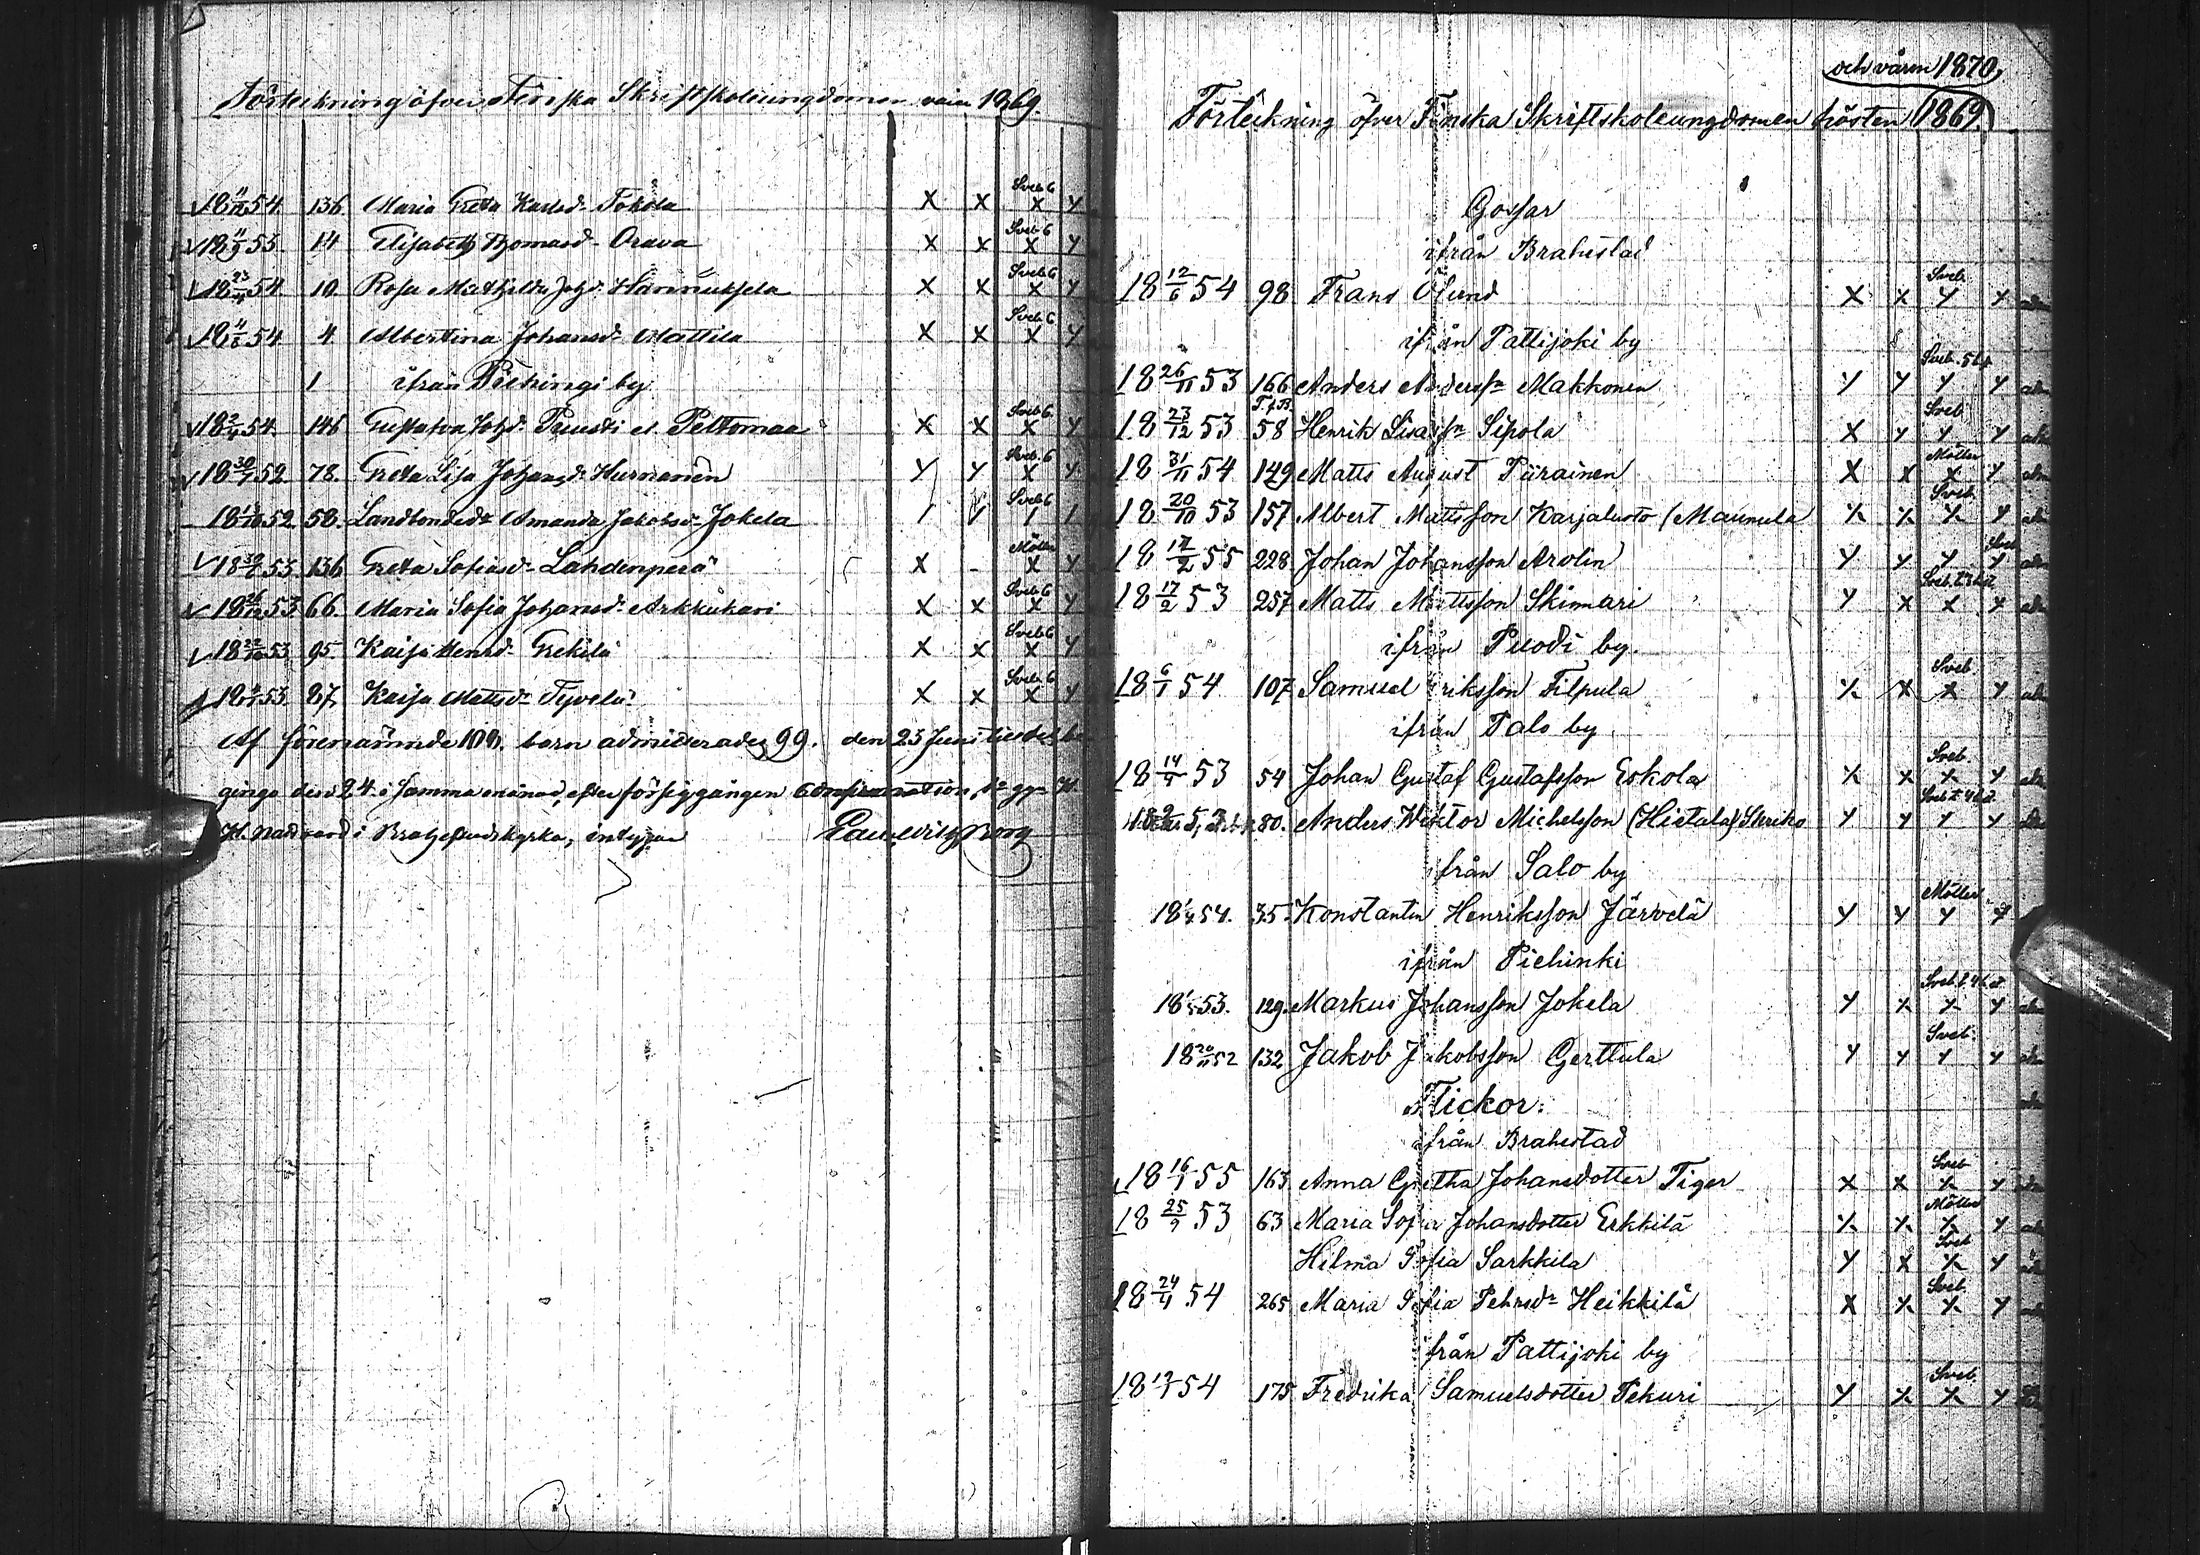 Förteckning öfver Finska Skriftskoleungdomen våren 1869.
Sveb 6
18 11/11 54 136 Maria Greta Karlsd. Tokola x x x x
Sveb 6
18 11/9 53 14 Elisabeth Thomasd. Orava x x x x
Sveb. 6
18 23/4 54 10 Rosa Mathilda Johd. Hannuksela x x x x
Sveb 6
18 11/6 54 4 Albertina Johansd. Mattila x x x x
1 ifrån Piehingi by
Sveb 6.
18 2/4 54. 146 Gustafva Johd. Puusti el. Peltomaa x x x x
Sveb. 6
18 30/7 52 78. Greta Lisa Johansd. Hurnanen y y x x
Sveb 6
18 1/10 52 58. Landbonded. Amanda Jakobsd. Jokela
Möller
18 30/6 53 136 Greta Sofiasd. Lahdenperä x - x y
Sveb 6
18 26/12 53 66. Maria Sofia Johansd. Arkkukari x x x y
Sveb 6
18 22/10 53 95. Kaisa Henrd. Grekilä x x x y
Sveb 6
53 87, Kaisa Mattsd. Tyvelä x x x y
Af förenämnde 100, barn admitterades 99. den 23 Juni
gingo den 24 i samma månad, efter försiggången Confirmation,
H. Nattvard i Brahestads kyrka, intygar
och våren 1870,
Förteckning öfver Finska Skriftskoleungdomen hösten 1869.
Gossar
ifrån Brahestad
Sveb.
18 12/6 54 98 Frans Ölund x x y y
ifrån Pattijoki by
Sveb.
18 26/11 53 166 Anders Anderss. Makkonen y y y y
T.f.B. Sveb
18 23/12 53 58 Henrik Lisass. Sipola x y y y
Möller
18 31/11 54 149 Matts August Piirainen x x x y
Sveb.
18 20/10 53 157 Albert Mattsson Karjaluoto (Maunula x x x y
Sveb
18 17/2 55 228 Johan Johansson Arolin y y y y
18 17/2 53 257 Matts Mattsson Skinnari y x x y
ifrån Puodi by.
Sveb.
18 6/1 54 107 Samuel Eriksson Filpula x x x y
ifrån Palo by
Sveb.
18 14/9 53 54 Johan Gustaf Gustafsson Eskola x x x y
80. Anders Wiktor Michelsson (Hietala) Skriko y y y y
ifrån Salo by
Möller
54. 35. Konstantin Henriksson Järvelä y y y y
ifrån Piehinki
53. 129. Markus Johansson Jokela y x x y
Sveb.
52 132 Jakob Jakobsson Gerttula y y y y
Flickor.
ifrån Brahestad
Sveb
18 16/1 55 163 Anna Gretha Johansdotter Tiger x x x y
Möller
18 25/9 53 63 Maria Sofia Johansdotter Erkkilä x x x y
Sveb
Hilma Sofia Sarkkila y x x y
Sveb.
18 24/4 54 265 Maria Sofia Pehrsd. Heikkilä x x x y
ifrån Pattijoki by
Sveb
54 175 Fredrika Samuelsdotter Pekuri y x x y